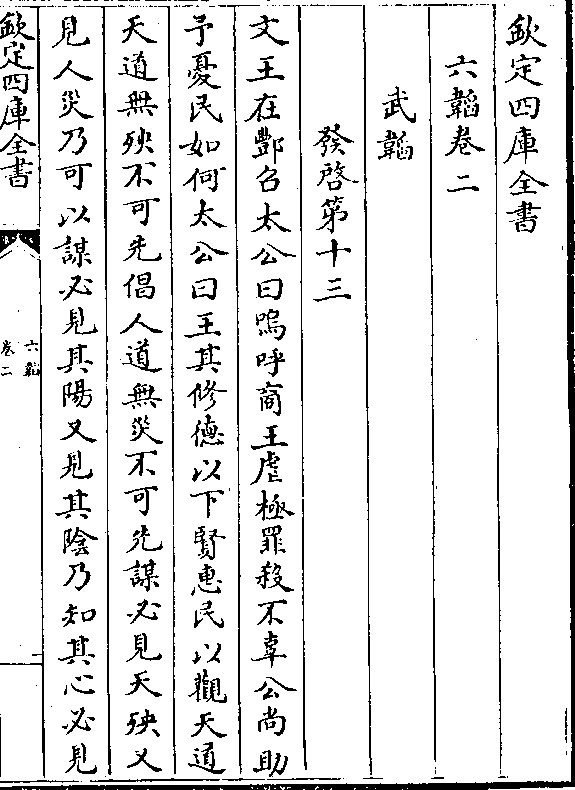 欽定四庫全書
六韜卷二
武韜
發啓第十三
文王在酆召太公曰嗚呼商王虐極罪殺不辜公尚助
予憂民如何太公曰王其修德以下賢惠民以觀天道
天道無殃不可先倡人道無災不可先謀必見天殃又
見人災乃可以謀必見其陽又見其陰乃知其心必見
欽定四庫全書
六韜
卷二